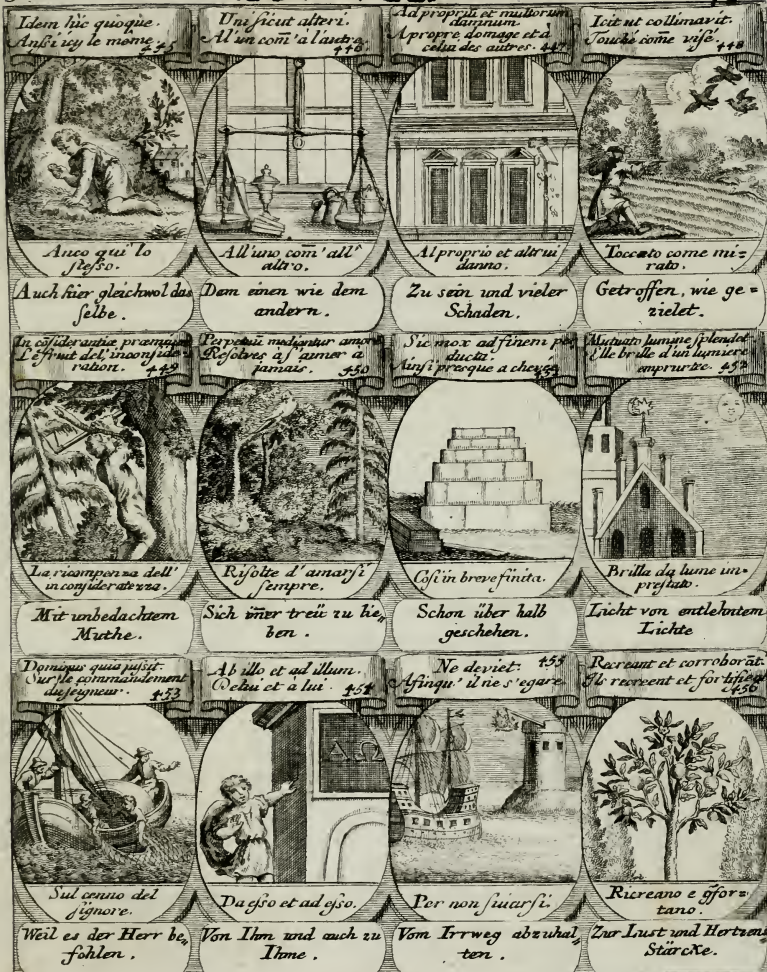 Idem hîc quoque.
Ansi icy le même.
445
Anco qui lo
stesso.
Auch hier gleichwol das
selbe.
Uni sicut alteri.
Al'un com̄'a l'autre.
446
All'uno com̄'all'
altro.
Dem einen wie dem
andern.
Ad proprium et multorum
damnum.
A propre domage et à
celui des autres. 447
Al proprio et altrui
danno.
Zu sein und vieler
Schaden.
Icit ut collimavit.
Touché come visé.
448
Toccato come mi=
rato.
Getroffen, wie ge=
zielet.
In cōsiderantiæ præmium
L'éfruit del'inconside
ration. 449
La ricompenza dell'
inconsideratezza.
Mit unbedachtem
Muthe.
Perpetuū mediantur amorē
Résolves à s'aimer a
jamais. 450
Risolte d'amarsi
sempre.
Sich im̄er treü zu lie
ben.
Sic mox ad finem per
ducta.
Ainsi presque a chevée
Cosi in breve finita.
Schon über halb
geschehen.
Mutuato lumine splendet
Elle brille d'un lumiere
emprurtee. 452
Brilla da lume im=
prestato.
Licht von entlehntem
Lichte
Dominus quia jussit.
Sur le commandement
du seigneur. 453
Sul cenno del
signore.
Weil es der Herr be
fohlen.
Ab illo et ad illum.
Delui et a lui. 454
ΑΩ
Da esso et ad esso.
Von Ihm und auch zu
Ihme.
Ne deviet. 455
Afinqu' il ne s'egare
Per non sviarsi.
Vom Irrweg abzuhal
ten.
Recreant et corroborāt.
Ils recreent et fortifient
456
Ricreano e
tano.
Zur Lust und Hertzens
Stärcke.